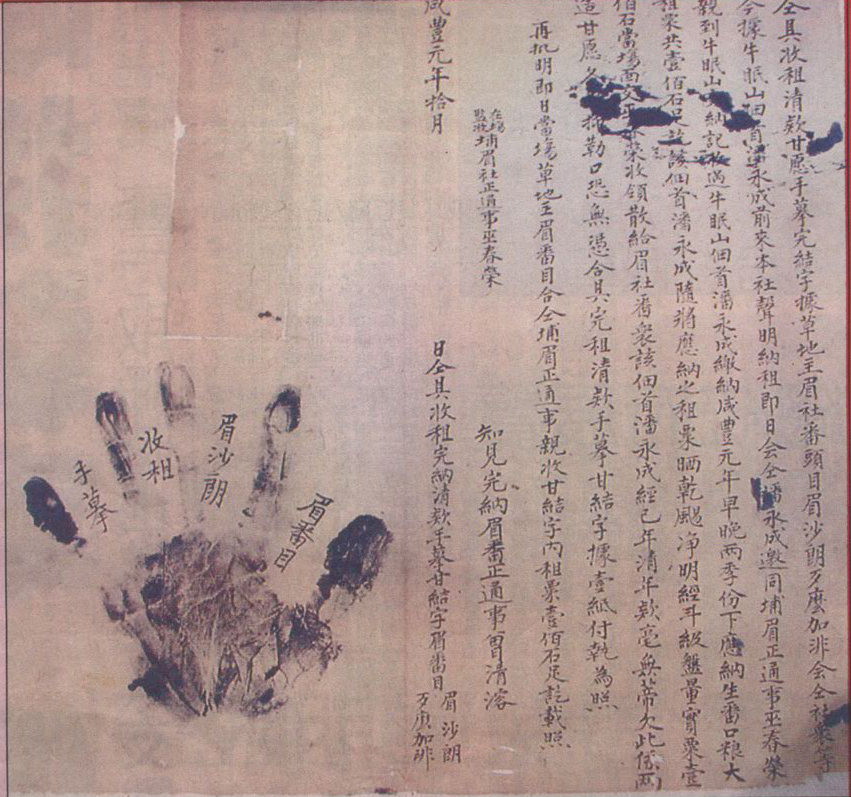 仝具收租清款甘愿手摹完結字據草地主眉社番頭目眉沙朗歹庅加非会仝社眾等
今據牛眠山佃首潘永成前來本社聲明納租即日会仝潘永成邀同埔眉正通事巫春榮
親到牛眠山 納記收過牛眠山佃首潘永成繳納咸豐元年早晚兩季份下應納生番口粮大
租粟共壹佰石足訖該佃首潘永成隨將應納之租粟晒乾颺净明經斗級盤量實粟壹
佰石當場面交 榮收領散給眉社番衆該佃首潘永成經已年清年款毫無蒂欠此係兩
造甘愿 抑勒口恐無憑合具完租清款手摹甘結字據壹紙付執為照
再批明即日當塲草地主眉番目合仝埔眉正通事親收甘結字内租粟壹佰石足訖載照
在塲
監收
埔眉社正通事巫春榮
知見完納眉番正通事曾清溶
咸豐元年拾月
日仝具收租完納清款手摹甘結字眉番目
眉沙朗
歹庅加非
眉番目
眉沙朗
收租
手摹